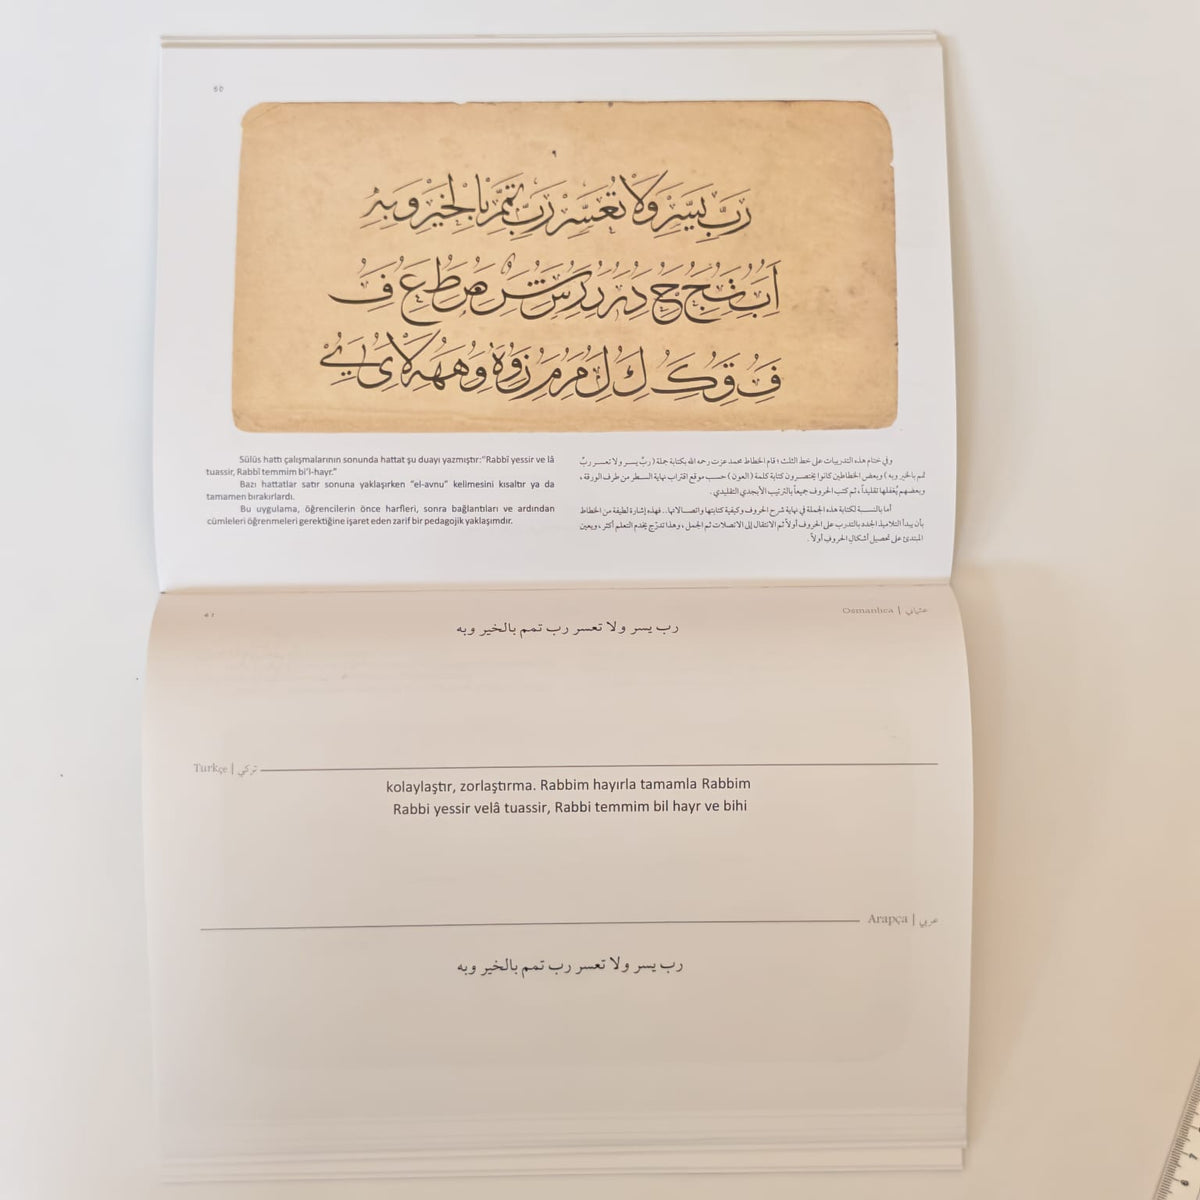 رَبِّ يَسِّرْ وَلَا تُعَسِّرْ رَبِّ تَمِّمْ بِالْخَيْرِ وَبِهِ
Sülüs hattı çalışmalarının sonunda hattat şu duayı yazmıştır:“Rabbî yessir ve lâ
tuassir, Rabbî temmim bi’l-hayr.”
Bazı hattatlar satır sonuna yaklaşırken “el-avnu” kelimesini kısaltır ya da
tamamen bırakırlardı.
Bu uygulama, öğrencilerin önce harfleri, sonra bağlantıları ve ardından
cümleleri öğrenmeleri gerektiğine işaret eden zarif bir pedagojik yaklaşımdır.
وفي ختام هذه التدريبات على خط الثلث ؛ قام الخطاط محمد عزت رحمه الله بكتابة جملة ( ربِّ يسر ولا تعسر ربِّ
تمم بالخير وبه ) وبعض الخطاطين كانوا يختصرون كتابة كلمة ( العون ) حسب موقع اقتراب نهاية السطر من طرف الورقة ،
وبعضهم يُغفلها تقليداً ، ثم كتب الحروف جميعاً بالترتيب الأبجدي التقليدي .
أما بالنسبة لكتابة هذه الجملة في نهاية شرح الحروف وكيفية كتابتها واتصالاتها.. فهذه إشارة لطيفة من الخطاط
بأن يبدأ التلاميذ الجدد بالتدرب على الحروف أولاً ثم الانتقال إلى الاتصلات ثم الجمل ، وهذا تدرّج يخدم التعلم أكثر ، ويعين
المبتدئ على تحصيل أشكال الحروف أولاً .
Osmanlıca | عثماني
رب يسر ولا تعسر رب تمم بالخير وبه
Turkçe | تركي
kolaylaştır, zorlaştırma. Rabbim hayırla tamamla Rabbim
Rabbi yessir velâ tuassir, Rabbi temmim bil hayr ve bihi
Arapça | عربي
رب يسر ولا تعسر رب تمم بالخير وبه